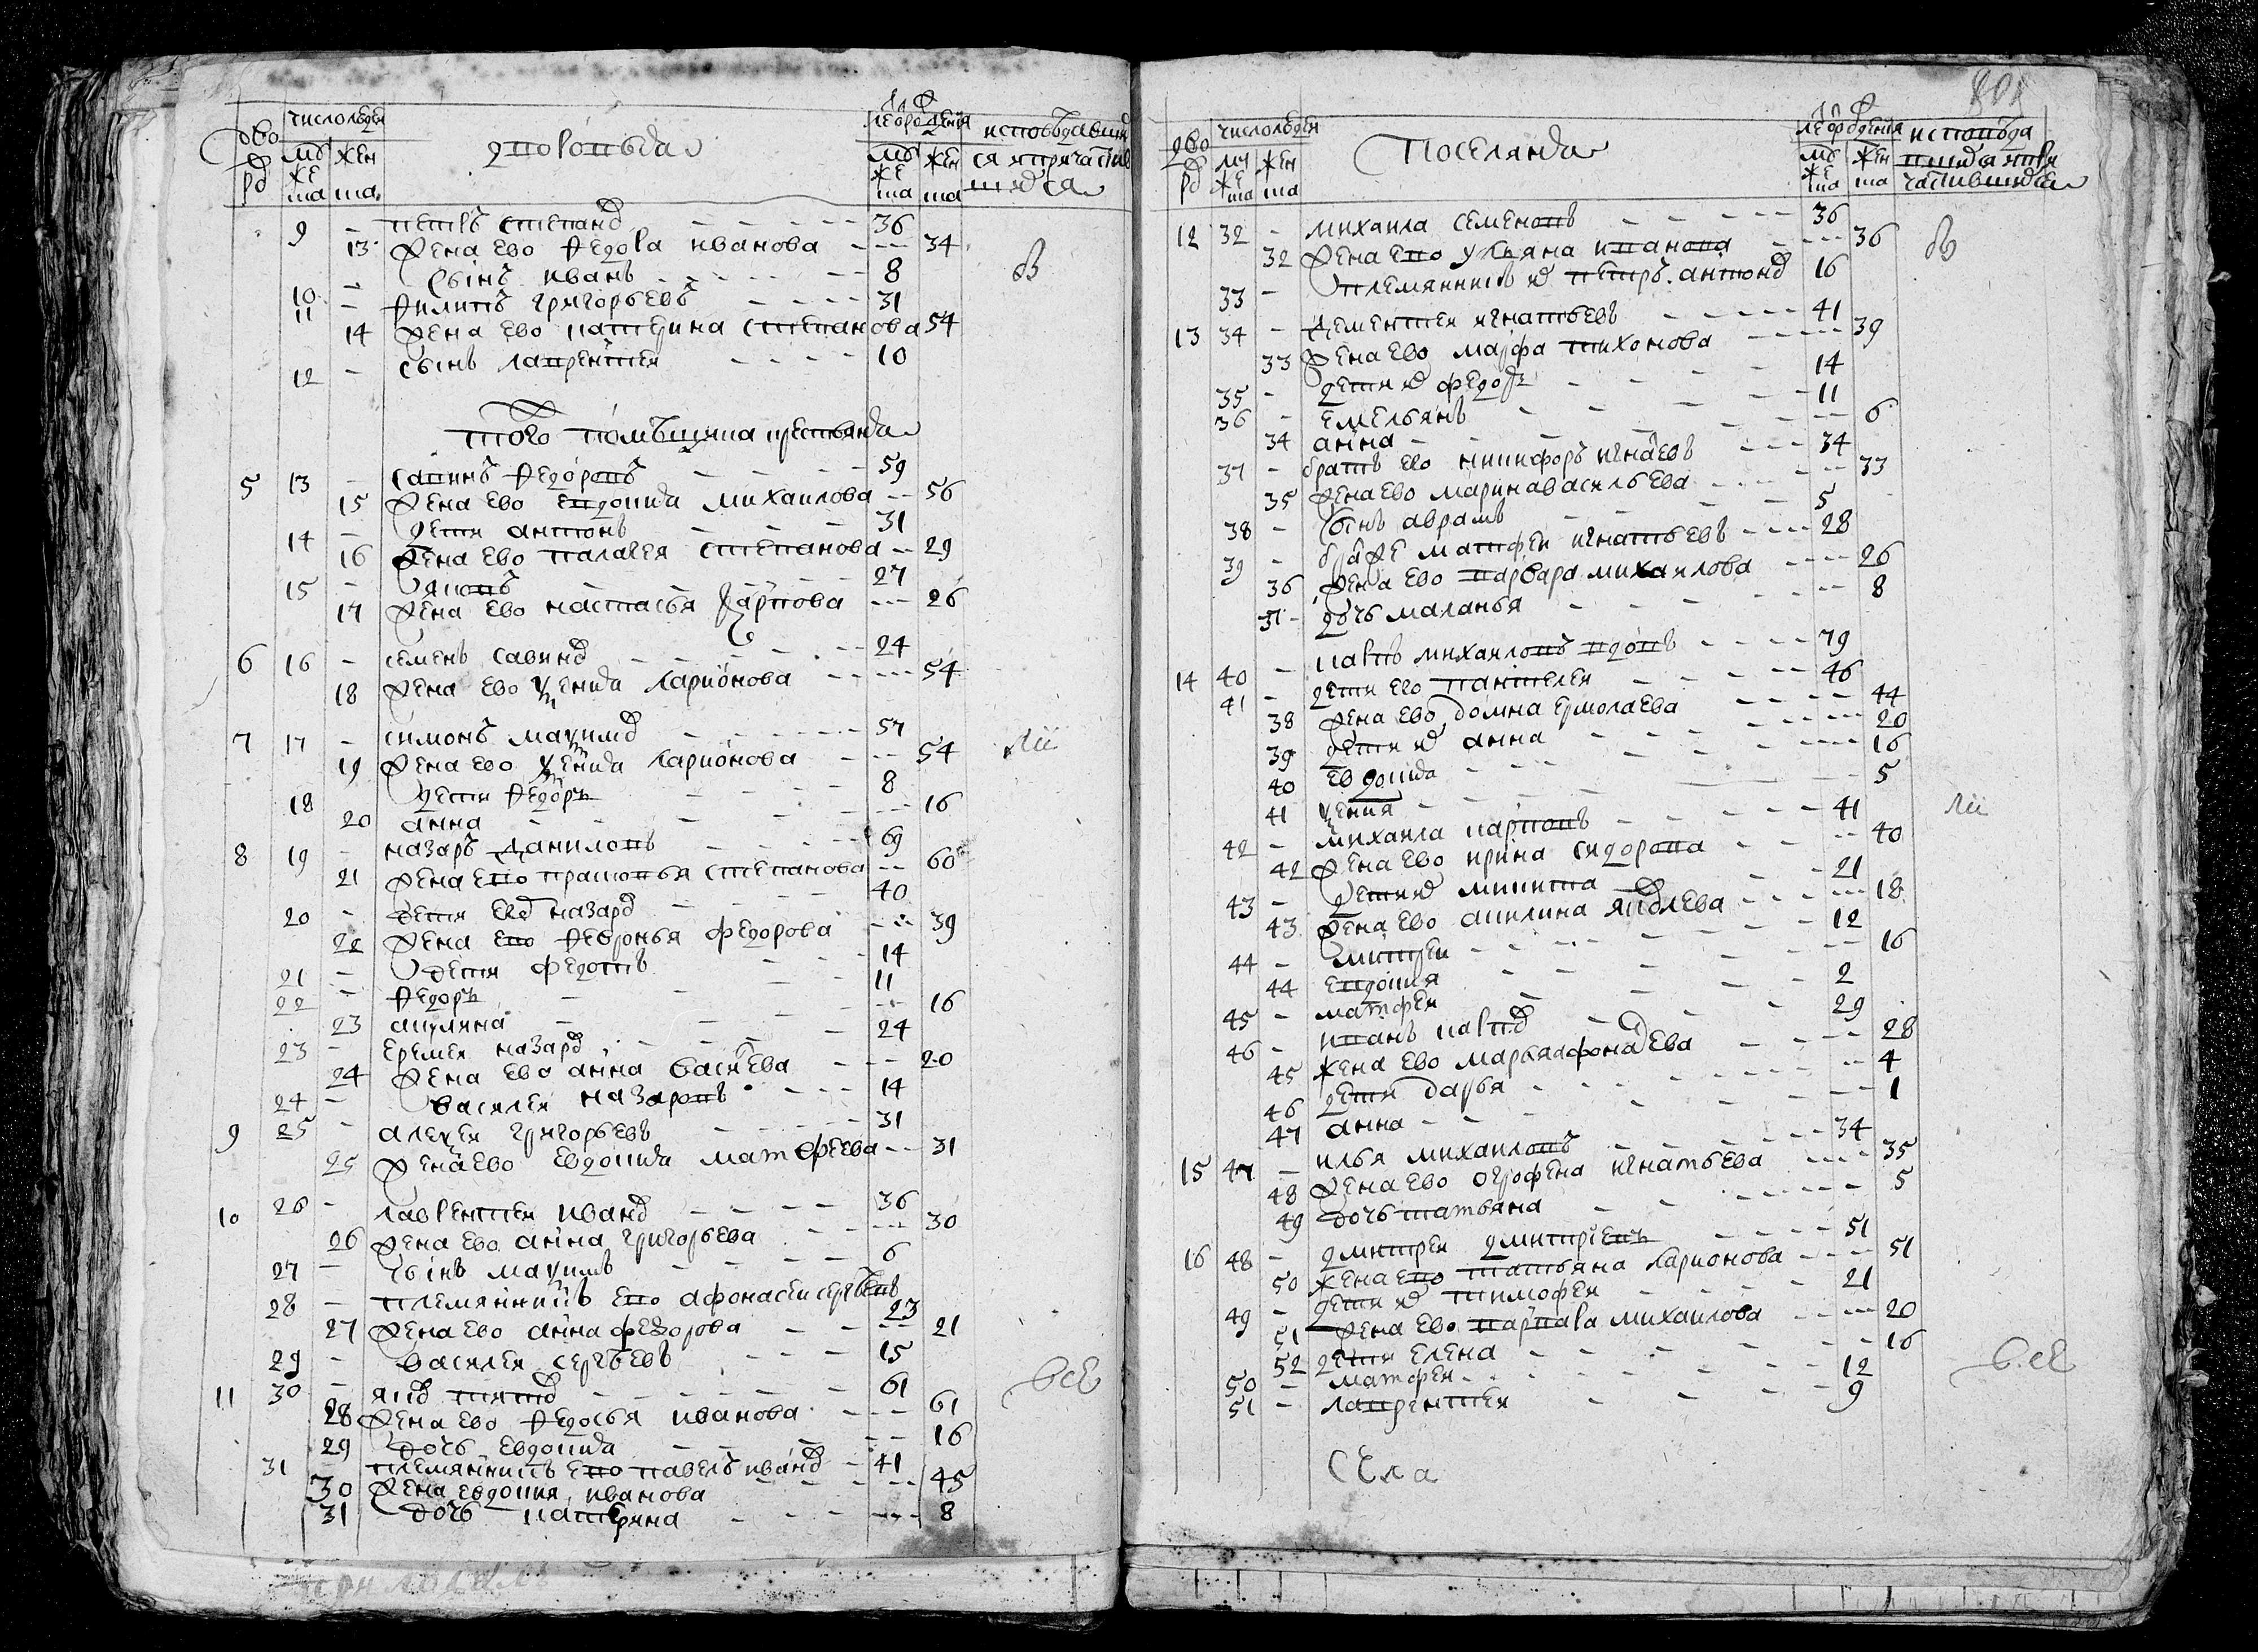 дво ры
число людей
му же ска
жен ска
дворовыя
лета рождения
му же ска
жен ска
исповедавши ся и причастив шияся
9 - петръ степанов - - - 36
13 жена ево федора иванова - - - 34
10 - сынъ иванъ - - - 8
11 - филипъ григорьевъ - - - 31
14 жена ево катерина степанова 54
12 - сынъ лаврентей - - - 10
того помѣщика крестьяня
5 13 - савинъ федоровъ - - - 59
15 жена ево евдокия михаилова - - 56
14 - дети антонъ - - - 31
16 жена ево палагея степанова - - 29
15 - яковъ - - - 27
17 жена ево настасья карпова - - - 26
6 16 - семенъ савинов - - - 24
18 жена ево ѯения ларионова - - - 54
7 17 - симонъ маѯимов - - - 57
19 жена ево ѯения ларионова - - - 54
18 - дети федоръ - - - 8
20 анна - - - 16
8 19 - назаръ даниловъ - - - 69
21 жена ево прасковья степанова - - 60
20 - дети ево назаръ - - - 40
22 жена ево февронья федорова - - - 39
21 - дети федотъ - - - 14
22 - федоръ - - - 11
23 акулина - - - 16
23 - еремея назаров - - - 24
24 жена ево анна васильева - - - 20
24 - василея назаровъ - - - 14
9 25 - алеѯея григорьевъ - - - 31
25 жена ево евдокия матфеева - - 31
10 26 - лаврентея иванов - - - 36
26 жена ево анна григорьева - - - 30
27 - сынъ маѯимъ - - - 6
28 - племянникъ ево афонасеи сергѣевъ 23
27 жена ево анна федорова - - - 21
29 - василея сергѣевъ - - - 15
11 30 - - - - 61
28 жена ево федосья иванова - - - 61
29 дочь евдокия - - - 16
31 - племянникъ ево павелъ иванов - 41
30 жена евдокия иванова - - - 45
31 дочь катерина - - - 8
дво ры
число людей
му же ска
жен ска
поселяня
лета рождения
му же ска
жен ска
исповеда шияся и при частившияся
12 32 - михаила семеновъ - - - 36
32 жена ево ульяна иванова - - - 36
33 - племянникъ их петръ антонов 16
13 34 - дементея игнатьевъ - - - 41
33 жена ево марфа тихонова - - - 39
35 - дети их федоръ - - - 14
36 - емельянъ - - - 11
34 анна - - - 6
37 - братъ ево никифоръ игнаевъ - - - 34
35 жена ево марина васильева - - - 33
38 - сынъ аврамъ - - - 5
39 - братже матфеи игнатьевъ - - - 28
36 жена ево варвара михаилова - - - 26
37 - дочь маланья - - - 8
14 40 - карпъ михаиловъ вдовъ - - - 79
41 - дети его пантелеи - - - 46
38 жена ево домна ермолаева - - - 44
39 дети их анна - - - 20
40 евдокия - - - 16
41 ѯения - - - 5
42 - михаила карповъ - - - 41
42 жена ево ирина сидорова - - - 40
43 - дети их никита - - - 21
43 жена ево акилина яковлева - - - 18
44 - митреи - - - 12
44 евдокия - - - 16
45 - матфеи - - - 2
46 - иванъ карпов - - - 29
45 жена ево марья афонасева - - - 28
46 дети дарья - - - 4
47 анна - - - 1
15 47 - илья михаиловъ - - - 34
48 жена ево огрофена игнатьева - - - 35
49 дочь татьяна - - - 5
16 48 - дмитреи дмитриевъ - - - 51
50 жена ево татьяна ларионова - - - 51
49 - дети их тимофеи - - - 21
51 жена ево варвара михаилова - - - 20
52 дети елена - - - 16
50 - матфеи - - - 12
51 - лаврентеи - - - 9
села